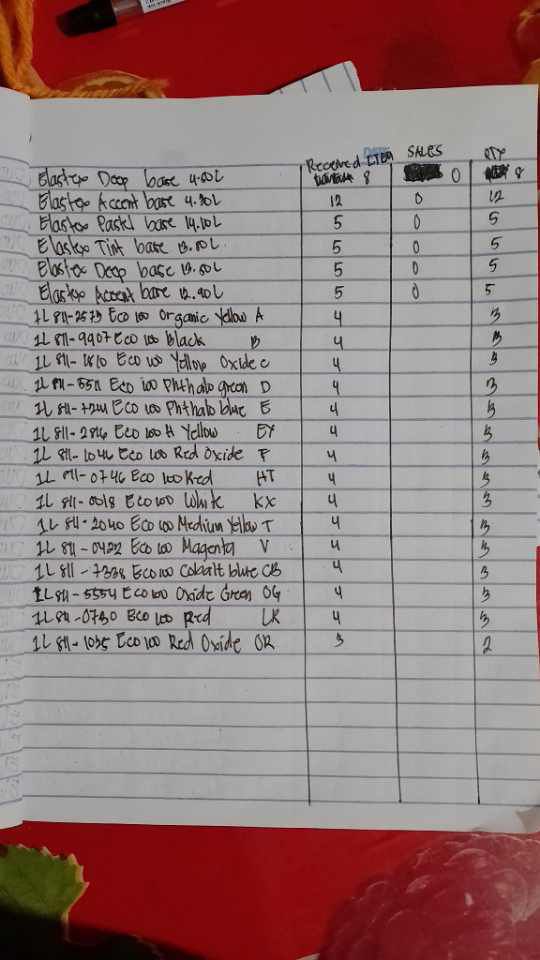 Received ITEM SALES QTY
Elastex Deep base 4.00L 8 0 8
Elastex Accent base 4.30L 12 0 12
Elastex Pastel base 14.10L 5 0 5
Elastex Tint base 13.50L 5 0 5
Elastex Deep base 5 0 5
Elastex Accent base 12.90L 5 0 5
1L 811-2573 Eco 100 Organic Yellow A 4 3
1L 811-9907 Eco 100 black B 4 3
1L 811-1810 Eco 100 Yellow Oxide C 4 3
1L 811-5511 Eco 100 Phthalo green D 4 3
1L 811-7214 Eco 100 Phthalo blue E 4 3
1L 811-2816 Eco 100 H Yellow EY 4 3
1L 811-1046 Eco 100 Red Oxide F 4 3
1L 811-0746 Eco 100 Red HT 4 3
1L 811-0018 Eco 100 White KX 4 3
1L 811-2040 Eco 100 Medium Yellow T 4 3
1L 811-0422 Eco 100 Magenta V 4 3
1L 811-7338 Eco 100 Cobalt blue CB 4 3
1L 811-5554 Eco 100 Oxide Green OG 4 3
1L 811-0730 Eco 100 Red LR 4 3
1L 811-1035 Eco 100 Red Oxide OR 3 2